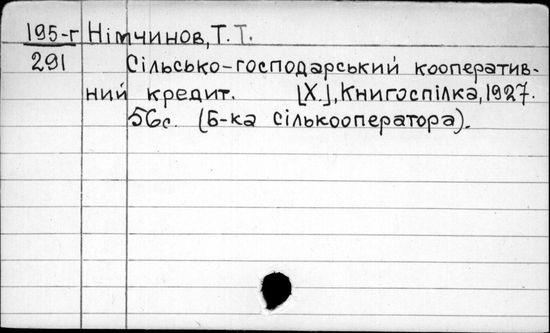 195-г Німчинов, Т. Т.
291 Сільсько-господарський кооператив-
ний кредит. [Х.], Книгоспілка, 1927.
56с. (Б-ка сількооператора).